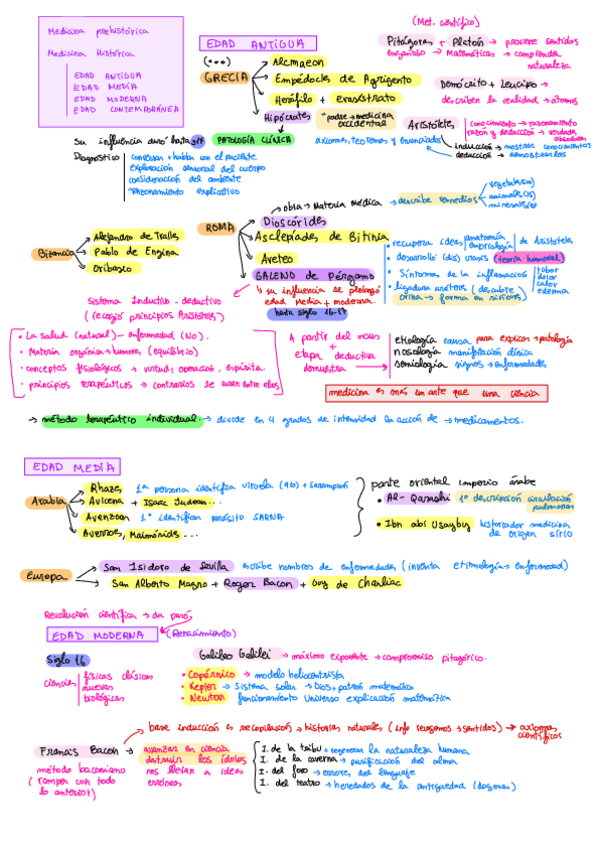 Medicina prehistórica
Medicina Histórica
EDAD ANTIGUA
EDAD MEDIA
EDAD MODERNA
EDAD CONTEMPORÁNEA
EDAD ANTIGUA
(...)
GRECIA
Alcmaeon
Empédocles de Agrigento
Herófilo + erasístrato
Hipócrates "padre → medicina occidental
(Met. científico)
Pitágoras + Platón → proviene sentidos
Matemáticas → comprender
naturaleza
Demócrito + Leucipo →
describen la realidad → átomos
Aristóteles
conocimiento → razonamiento
razón y deducción → verdades
absolutas
axiomas, teoremas y enunciados
inducción → mostrar conocimientos
deducción → demostrarlos
Su influencia duró hasta
PATOLOGÍA CLÍNICA
Diagnostico
conversar + hablar con el paciente
exploración sensorial del cuerpo
consideración del ambiente
Razonamiento explicativo
Bizancio
Alejandro de Tralles
Pablo de Engina
Oribasco
ROMA
obra → Materia Médica → describe remedios
vegetales(600)
animales
minerales
Dioscórides
Asclepíades de Bitinia
Areteo
GALENO de Pérgamo
↳ su influencia se prolongó
edad Media + moderna.
hasta siglo 16-17
recupera ideas
anatomía
embriología
de Aristóteles
• desarrolló crasis (teoría humoral)
• Síntomas de la inflamación
rubor
dolor
calor
edema
• ligadura uréteres (descubre
orina → forma en riñones
Sistema Inductivo - deductivo
(recogió principios Aristóteles)
• La salud (natural) - enfermedad (No).
• Materia orgánica → humores, (equilibrio)
• conceptos fisiológicos → virtud, operación, espíritu.
• principios terapéuticos → contrarios se curan entre ellos
A partir del nous
+
etapa deductiva
demuestra
etiología causa para explicar → patología
nosología manifestación clínica
semiología signos → enfermedades
medicina es más un arte que una ciencia
→ método terapéutico individual → divide en 4 grados de intensidad la acción de → medicamentos.
EDAD MEDIA
Arabia
Rhazes 1ª persona identifica viruela (910) + Sarampión
Avicena + Isaac Judaeus...
Avenzoar 1º identifican parásito SARNA
Averroes, Maimónides ...
parte oriental imperio árabe
• Al- Qarashi 1ª descripción circulación
pulmonar
• Ibn abi Usayby historiador medicina
de origen sirio
Europa
San Isidoro de Sevilla escribe nombres de enfermedades (inventa etimología → enfermedad)
San Alberto Magno + Roger Bacon + Guy de Chauliac
Revolución científica →
EDAD MODERNA (Renacimiento)
Siglo 16
ciencias
físicas clásicas
nuevas
biológicas
Galileo Galilei → máximo exponente → compromiso pitagórico.
• Copérnico → modelo heliocentrista
• Kepler → Sistema solar → Dios + patrón matemático
• Newton funcionamiento Universo explicación matemática
base inducción es recopilación → historias naturales (info recogemos → sentidos) → axiomas
científicos
Francis Bacon →
método baconiano
(romper con todo
lo anterior)
avanzar en ciencia
destruir los ídolos
nos llevan a ideas
erróneas
I. de la tribu → regenerar la naturaleza humana
I. de la caverna → purificación del alma
I. del foro → errores del lenguaje
I. del teatro → heredados de la antigüedad (dogmas)